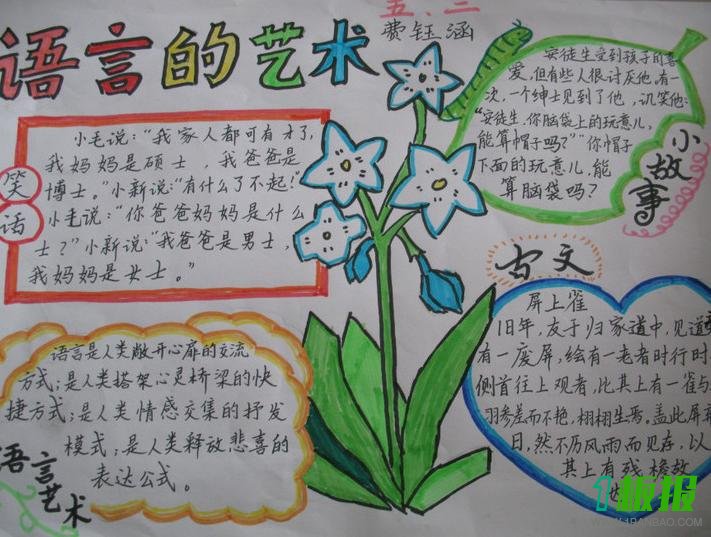 语言的艺术
五、二
费钰涵
笑话
小毛说：“我家人都可有才了，
我妈妈是硕士，我爸爸是
博士。”小新说：“有什么了不起！”
小毛说：“你爸爸妈妈是什么
士？”小新说：“我爸爸是男士，
我妈妈是女士。”
小故事
安徒生受到孩子们喜
爱，但有些人很讨厌他，有一
次，一个绅士见到了他，讥笑他：
“安徒生，你脑袋上的玩意儿，
能算帽子吗？”“你帽子
下面的玩意儿，能
算脑袋吗？
语言艺术
语言是人类敞开心扉的交流
方式；是人类搭架心灵桥梁的快
捷方式；是人类情感交集的抒发
模式；是人类释放悲喜的
表达公式。
古文
屏上雀
旧年，友于归家道中，见道
有一废屏，绘有一老者时行时
侧首往上观者，比其上有一雀与
羽参差而不艳，栩栩生焉，盖此屏弃
日，然不历风雨而见存，以
其上有残檐故
1板报
WWW.1BANBAO.COM